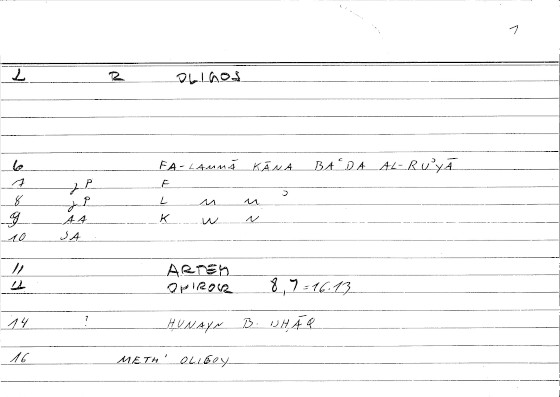 1
1 R OLIGOS
6 FA-LAMMĀ KĀNA BAʿDA AL-RUʾYĀ
7 JP F
8 JP L M M ʾ
9 AA K W N
10 SA
11 ARTEM
12 ONIROCR 8,7=16.13
14 ! ḤUNAYN B. ISḤĀQ
16 METH' OLIGOY